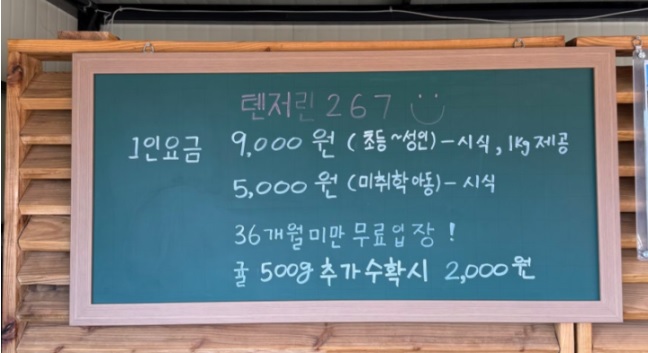 텐저린 267
1인요금 9,000원 (초등~성인)-시식, 1kg제공
5,000원 (미취학아동)-시식
36개월미만 무료입장!
귤 500g 추가수확시 2,000원